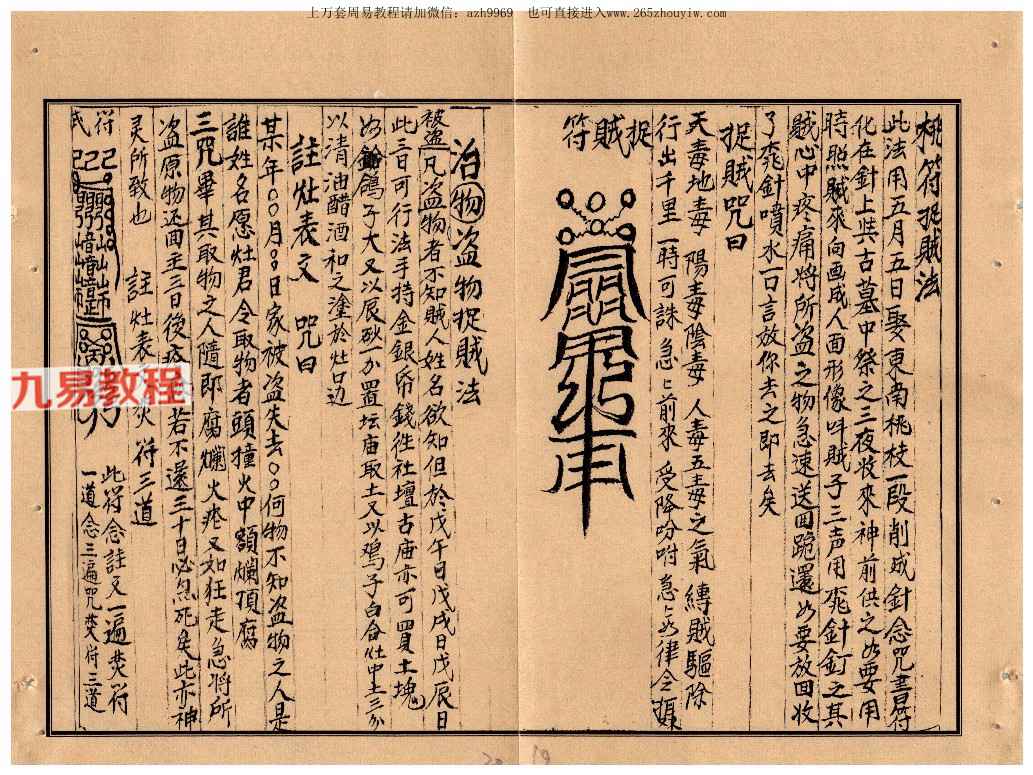 上万套周易教程请加微信：azh9969　也可直接进入www.265zhouyiw.com
桃符捉賊法
此法用五月五日娶東南桃枝一段削成針念咒書符
化在針上 古墓中祭之三夜收來神前供之如要用
時照賊來向画成人面形像呌賊子三声用 針釘之其
賊心中疼痛将所盗之物急速送回跪還如要放回收
了 針噴水一口言放你去之即去矣
捉賊咒曰
天毒地毒 陽毒陰毒 人毒五毒之氣 縛賊驅除
行出千里 一時可誅 急々前來 受降吩咐 急々如律令
捉賊符
治物盗物捉賊法
被盗凡盗物者不知賊人姓名欲知但於戊午日戊戌日戊辰日
此三日可行法手持金銀帋錢徃社壇古庙亦可買土塊
如鴿子大又以辰砂一 置坛庙取土又以鸡子白合灶中土三
以清油醋酒和之塗於灶口边
註灶表文 咒曰
某年○○月○○日家被盗失去○○何物不知盗物之人是
誰姓名愿灶君令取物者頭撞火中額爛頂腐
三咒畢 其取物之人隨即腐爛火疙又如狂走急将所
盗原物还回主三日後 若不還三十日必忽死矣此亦神
灵所致也 註灶表文 符三道
符
此符念註文一遍焚符
一道念三遍咒焚符三道
九易教程
20 19